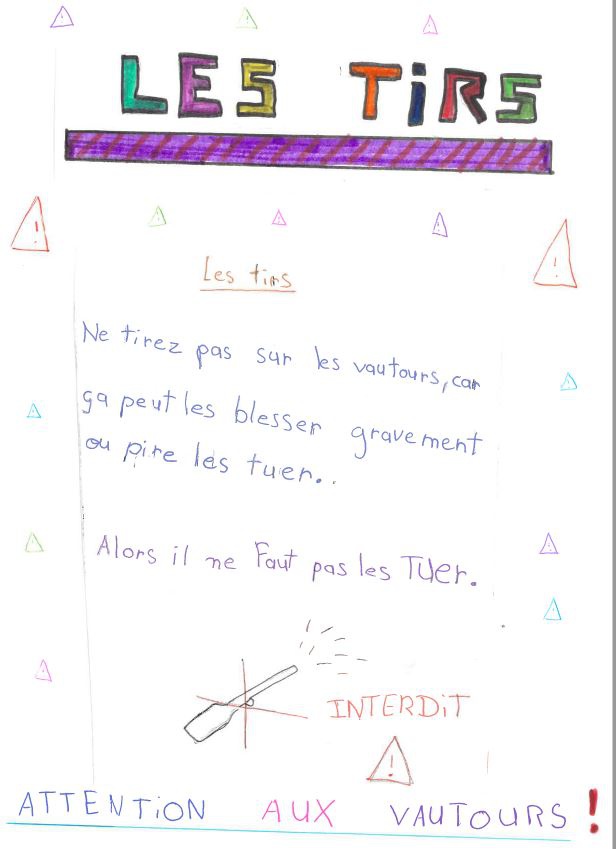 LES TiRS
Les tirs
Ne tirez pas sur les vautours, car
ça peut les blesser gravement
ou pire les tuer..
Alors il ne Faut pas les Tuer.
INTERDiT
ATTENTiON AUX VAUTOURS !